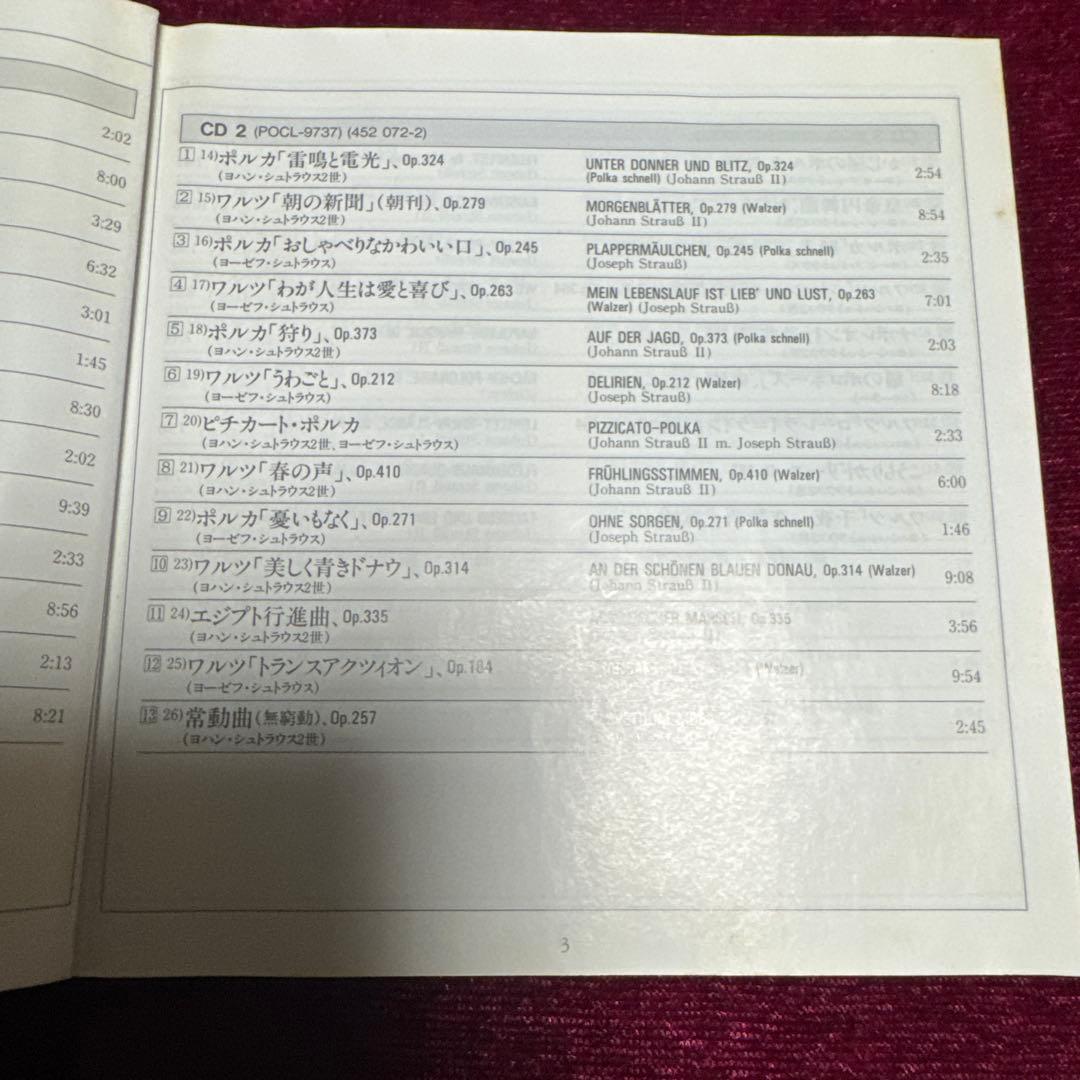 2:02
8:00
3:29
6:32
3:01
1:45
8:30
2:02
9:39
2:33
8:56
2:13
8:21
CD 2 (POCL-9737) (452 072-2)
1 14)ポルカ「雷鳴と電光」、Op.324 UNTER DONNER UND BLITZ, Op.324
(ヨハン・シュトラウス2世) (Polka schnell) (Johann Strauß II) 2:54
2 15)ワルツ「朝の新聞」(朝刊)、Op.279 MORGENBLÄTTER, Op.279 (Walzer)
(ヨハン・シュトラウス2世) (Johann Strauß II) 8:54
3 16)ポルカ「おしゃべりなかわいい口」、Op.245 PLAPPERMÄULCHEN, Op.245 (Polka schnell)
(ヨーゼフ・シュトラウス) (Joseph Strauß) 2:35
4 17)ワルツ「わが人生は愛と喜び」、Op.263 MEIN LEBENSLAUF IST LIEB' UND LUST, Op.263
(ヨーゼフ・シュトラウス) (Walzer) (Joseph Strauß) 7:01
5 18)ポルカ「狩り」、Op.373 AUF DER JAGD, Op.373 (Polka schnell)
(ヨハン・シュトラウス2世) (Johann Strauß II) 2:03
6 19)ワルツ「うわごと」、Op.212 DELIRIEN, Op.212 (Walzer)
(ヨーゼフ・シュトラウス) (Joseph Strauß) 8:18
7 20)ピチカート・ポルカ PIZZICATO-POLKA
(ヨハン・シュトラウス2世、ヨーゼフ・シュトラウス) (Johann Strauß II m. Joseph Strauß) 2:33
8 21)ワルツ「春の声」、Op.410 FRÜHLINGSSTIMMEN, Op.410 (Walzer)
(ヨハン・シュトラウス2世) (Johann Strauß II) 6:00
9 22)ポルカ「憂いもなく」、Op.271 OHNE SORGEN, Op.271 (Polka schnell)
(ヨーゼフ・シュトラウス) (Joseph Strauß) 1:46
10 23)ワルツ「美しく青きドナウ」、Op.314 AN DER SCHÖNEN BLAUEN DONAU, Op.314 (Walzer)
(ヨハン・シュトラウス2世) (Johann Strauß II) 9:08
11 24)エジプト行進曲、Op.335 MARSCH, Op.335
(ヨハン・シュトラウス2世) 3:56
12 25)ワルツ「トランスアクツィオン」、Op.184 (Walzer)
(ヨーゼフ・シュトラウス) 9:54
13 26)常動曲(無窮動)、Op.257
(ヨハン・シュトラウス2世) 2:45
3